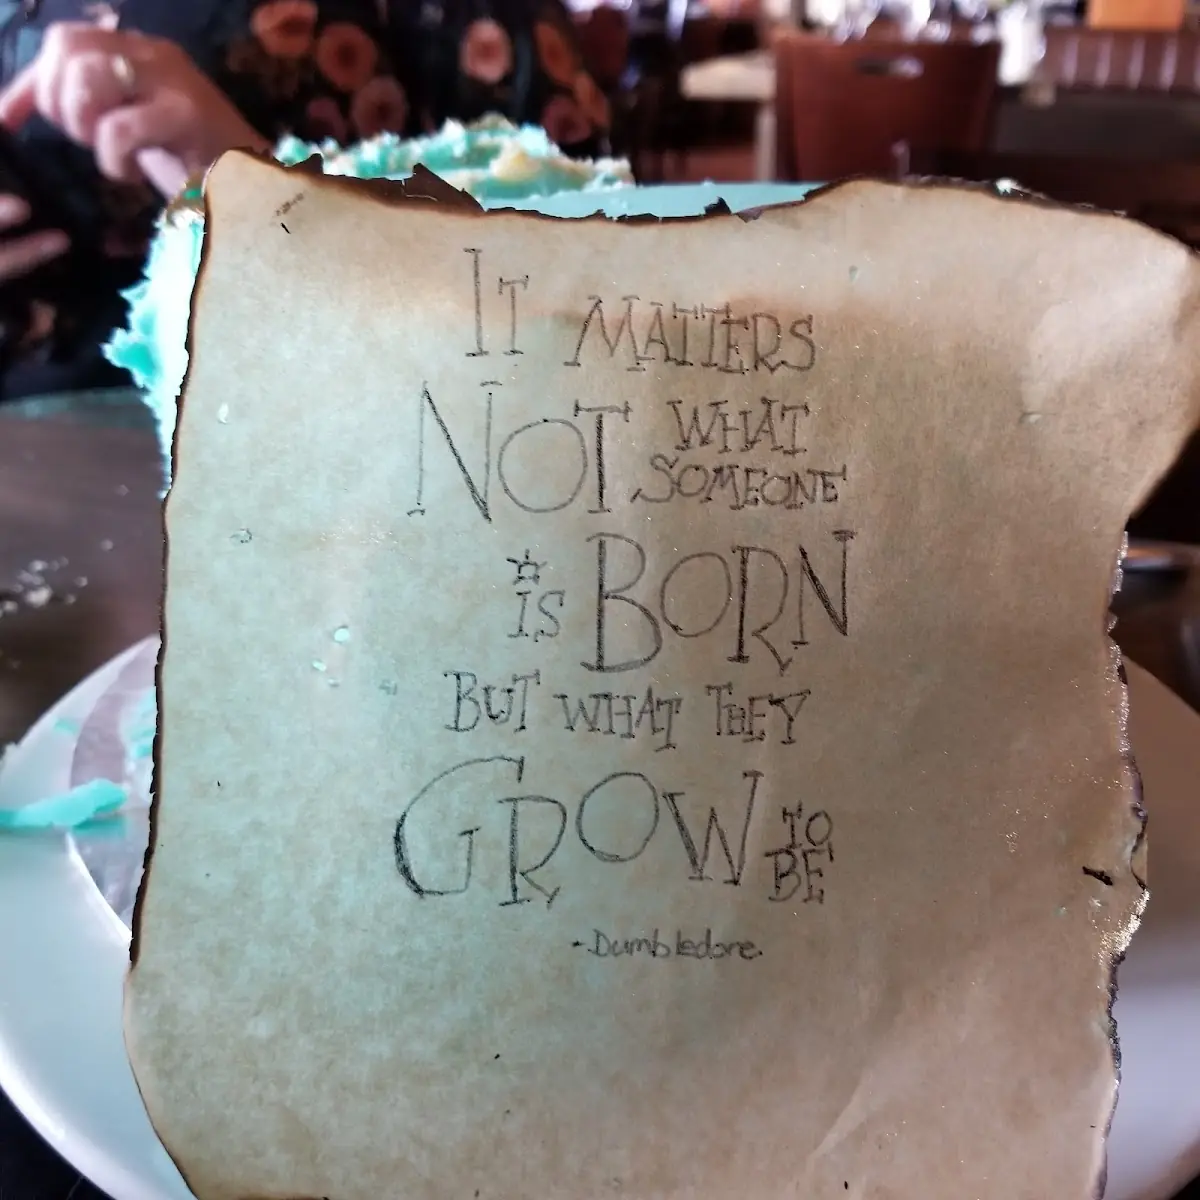 IT MATTERS
NOT WHAT
SOMEONE
IS BORN
BUT WHAT THEY
GROW TO
BE
-Dumbledore.